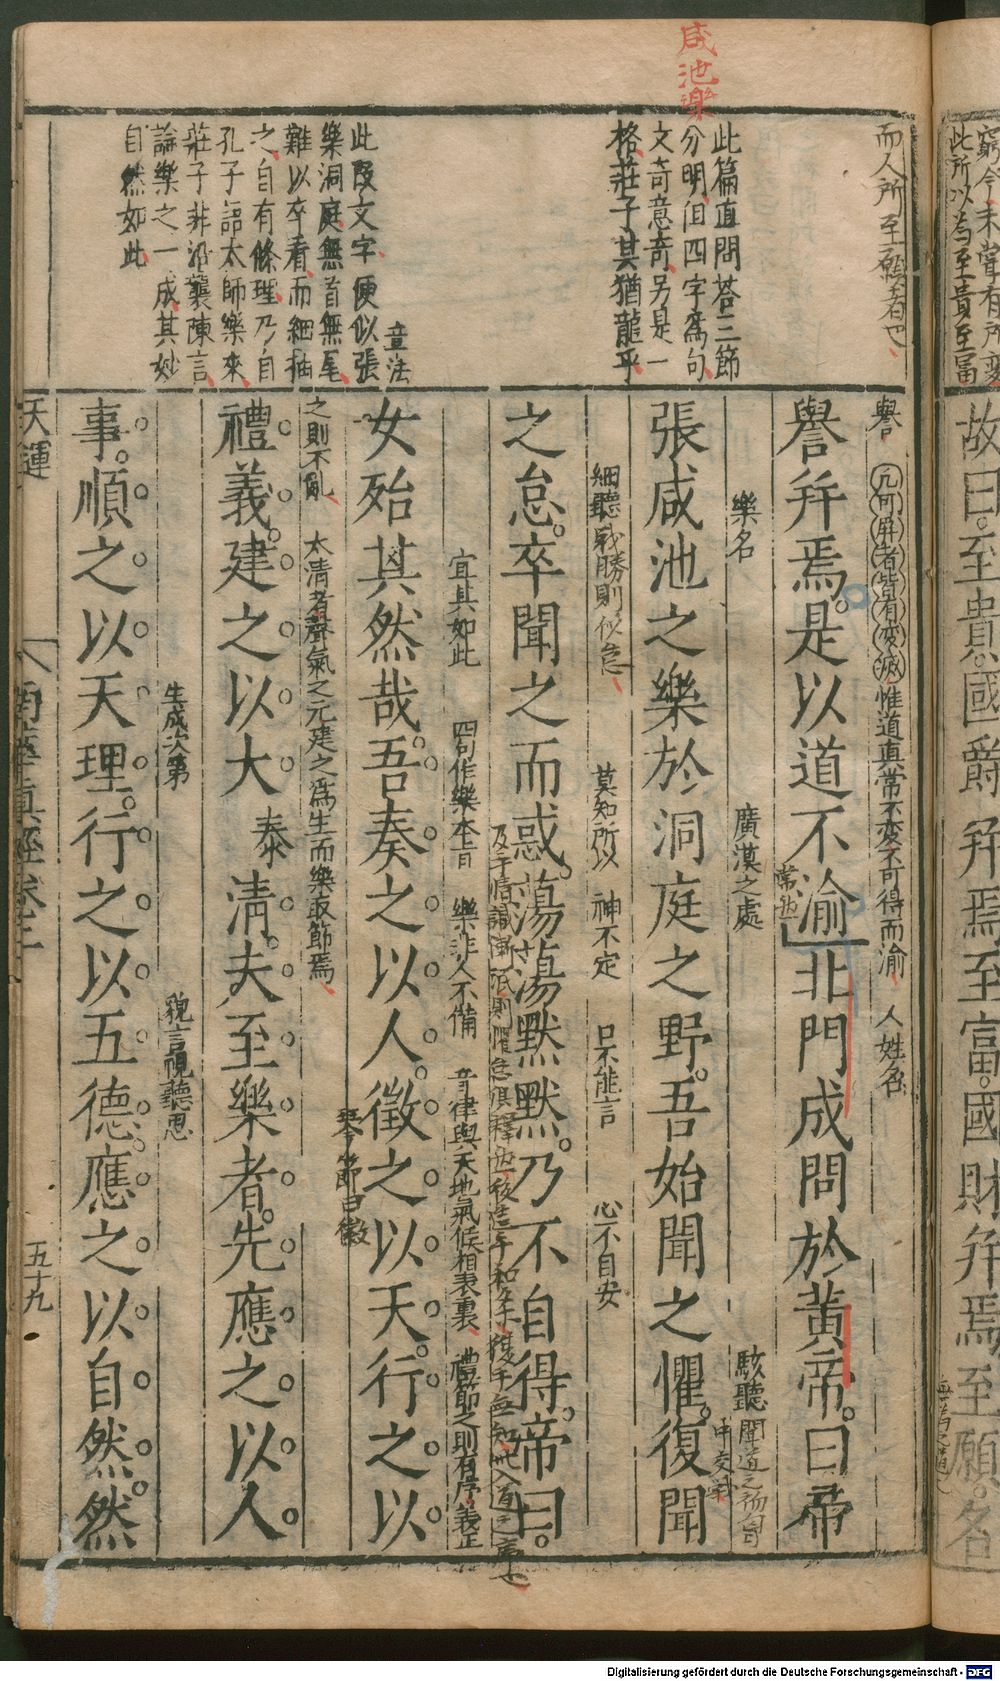 咸池樂
而人所至願者也
此篇直問答三節
分明泪四字為句
文奇意奇另是一
格莊子其猶龍乎
章法
此段文字便似張
樂洞庭無首無尾
難以卒看而細抽
之自有條理乃自
孔子語太師樂來
莊子非沿襲陳言
論樂之一成其妙
自然如此
譽 凡可屏者皆有變滅惟道真常不變不可得而渝 人姓名
譽幷焉是以道不渝北門成問於黃帝曰帝
常也
樂名 廣漠之處 駭聽 聞道之初胷
中交戰
張咸池之樂於洞庭之野吾始聞之懼復聞
細聽 戰勝則似怠 莫知所以 神不定 口不能言 心不自安
之怠卒聞之而惑蕩蕩默默乃不自得帝曰
宜其如此 四句作樂本旨 樂非人不備 音律與天地氣候相表裏 禮節之則有序義正
女殆其然哉吾奏之以人徵之以天行之以
之則不亂 太清者聲氣之元建之為生而樂取節焉 琴節曰徽
禮義建之以大清夫至樂者先應之以人
泰
生成次第 貌言視聽思
事順之以天理行之以五德應之以自然然
天運 南華真經卷之 五十九
窮今未嘗有所變
此所以為至貴至富
故曰至貴國爵幷焉至富國財幷焉至願名
無為之道
Digitalisierung gefördert durch die Deutsche Forschungsgemeinschaft - DFG